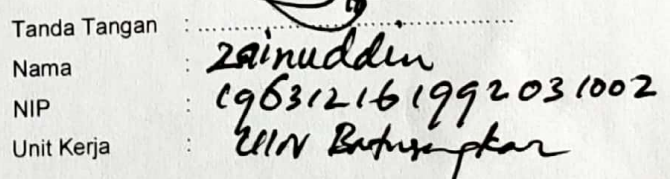 Tanda Tangan : ....................................................
Nama : Zainuddin
NIP : 196312161992031002
Unit Kerja : UIN Batusangkar